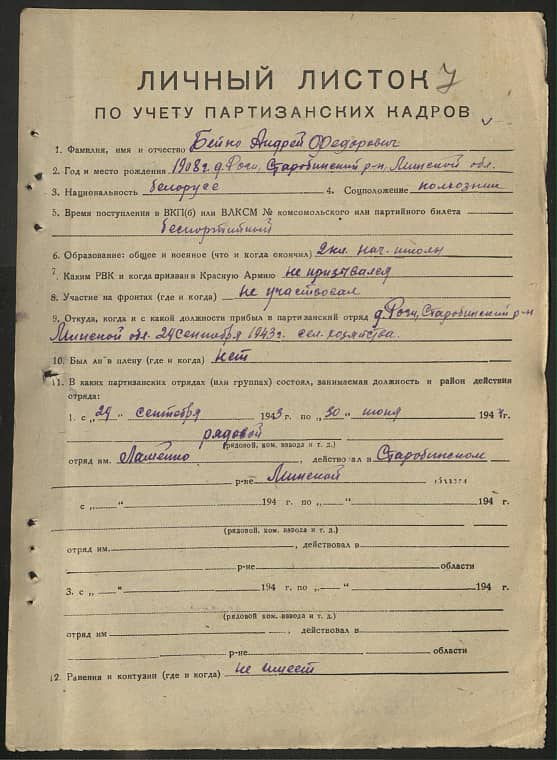 ЛИЧНЫЙ ЛИСТОК 7
ПО УЧЕТУ ПАРТИЗАНСКИХ КАДРОВ
1. Фамилия, имя и отчество Бейко Андрей Федорович
2. Год и место рождения 1908 г. д. Роги, Старобинский р-н, Минской обл.
3. Национальность белорусс 4. Соцположение колхозник
5. Время поступления в ВКП(б) или ВЛКСМ № комсомольского или партийного билета
беспартийный
6. Образование: общее и военное (что и когда окончил) 2 кл. нач. школы
7. Каким РВК и когда призван в Красную Армию не призывался
8. Участие на фронтах (где и когда) не участвовал
9. Откуда, когда и с какой должности прибыл в партизанский отряд д. Роги, Старобинский р-н
Минской обл. 29 сентября 1943 г. сел. хозяйства.
10. Был ли в плену (где и когда) нет
11. В каких партизанских отрядах (или группах) состоял, занимаемая должность и район действия
отряда:
1. с „29" сентября 1943 г. по „30" июня 1944 г.
рядовой
(рядовой, ком. взвода и т. д.)
отряд им. , действовал в Старобинском
р-не Минской области
с „ " 194 г. по „ " 194 г.
(рядовой, ком. взвода и т. д.)
отряд им. , действовал в
р-не области
3. с „ " 194 г. по „ " 194 г.
(рядовой, ком. взвода и т. д.)
отряд им , действовал в
р-не области
12. Ранения и контузии (где и когда) не имеет